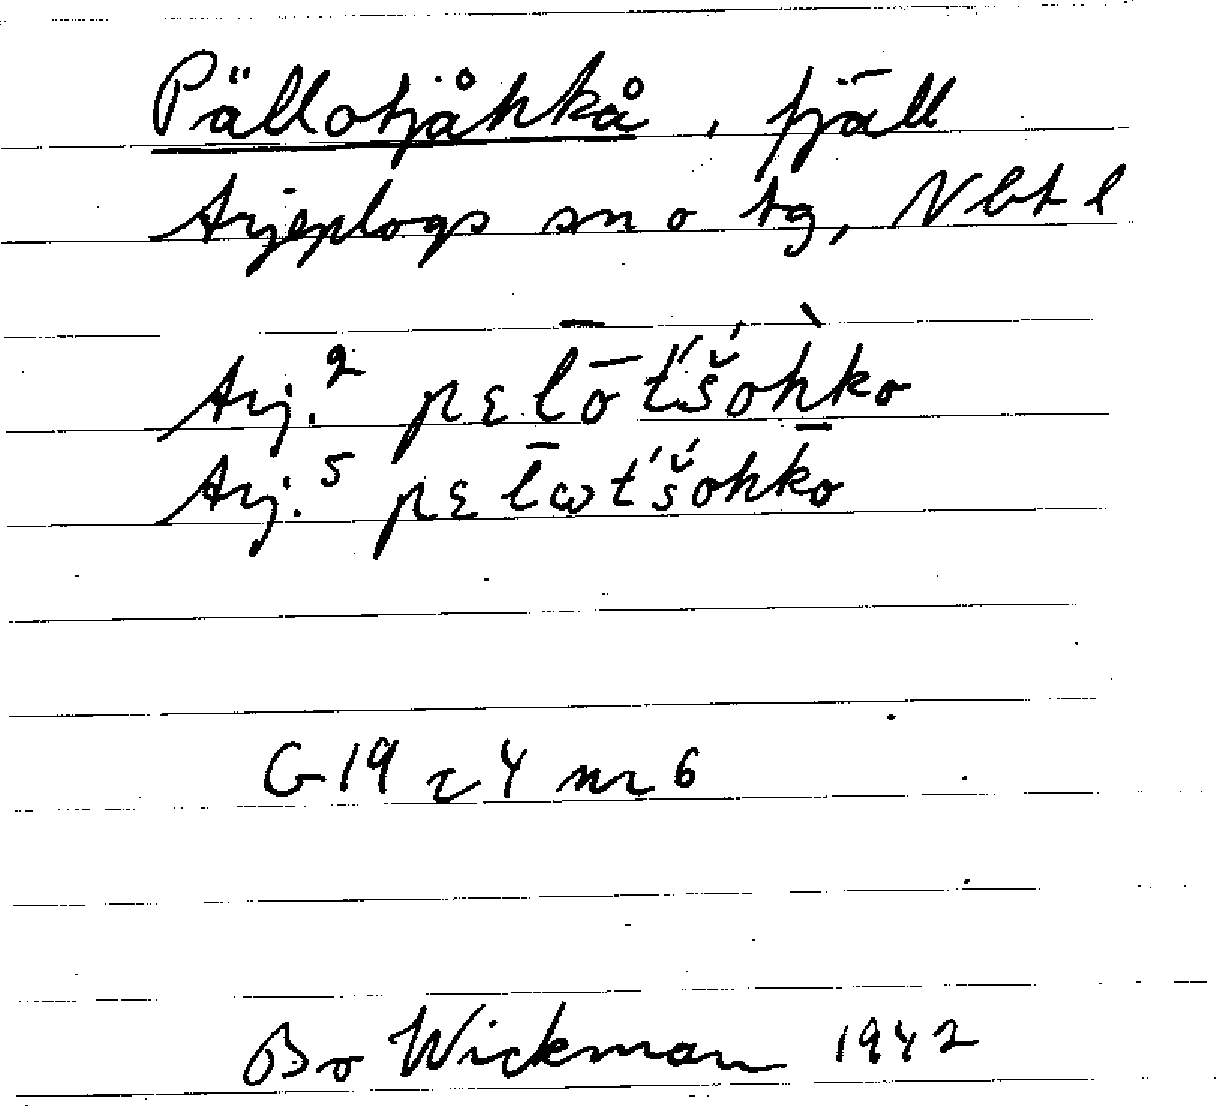 Pällotjåhkå, fjäll
Arjeplogs sn o tg, Nbt l
Arj.² pɛl̄ōt́'š́ohko
Arj.⁵ pɛl̄ωt́š́ohkō
G19 r4 nr 6
Bo Wickman 1942